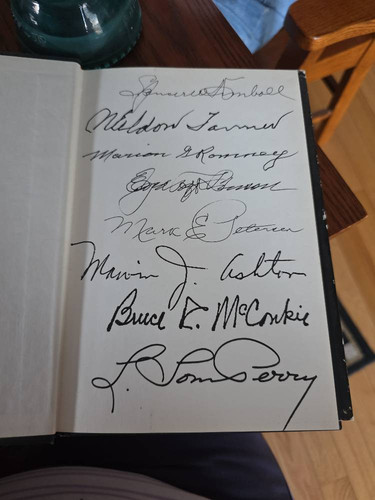 Spencer W. Kimball
N Eldon Tanner
Marion G Romney
Ezra Taft Benson
Mark E Petersen
Marvin J. Ashton
Bruce R. McConkie
L. Tom Perry